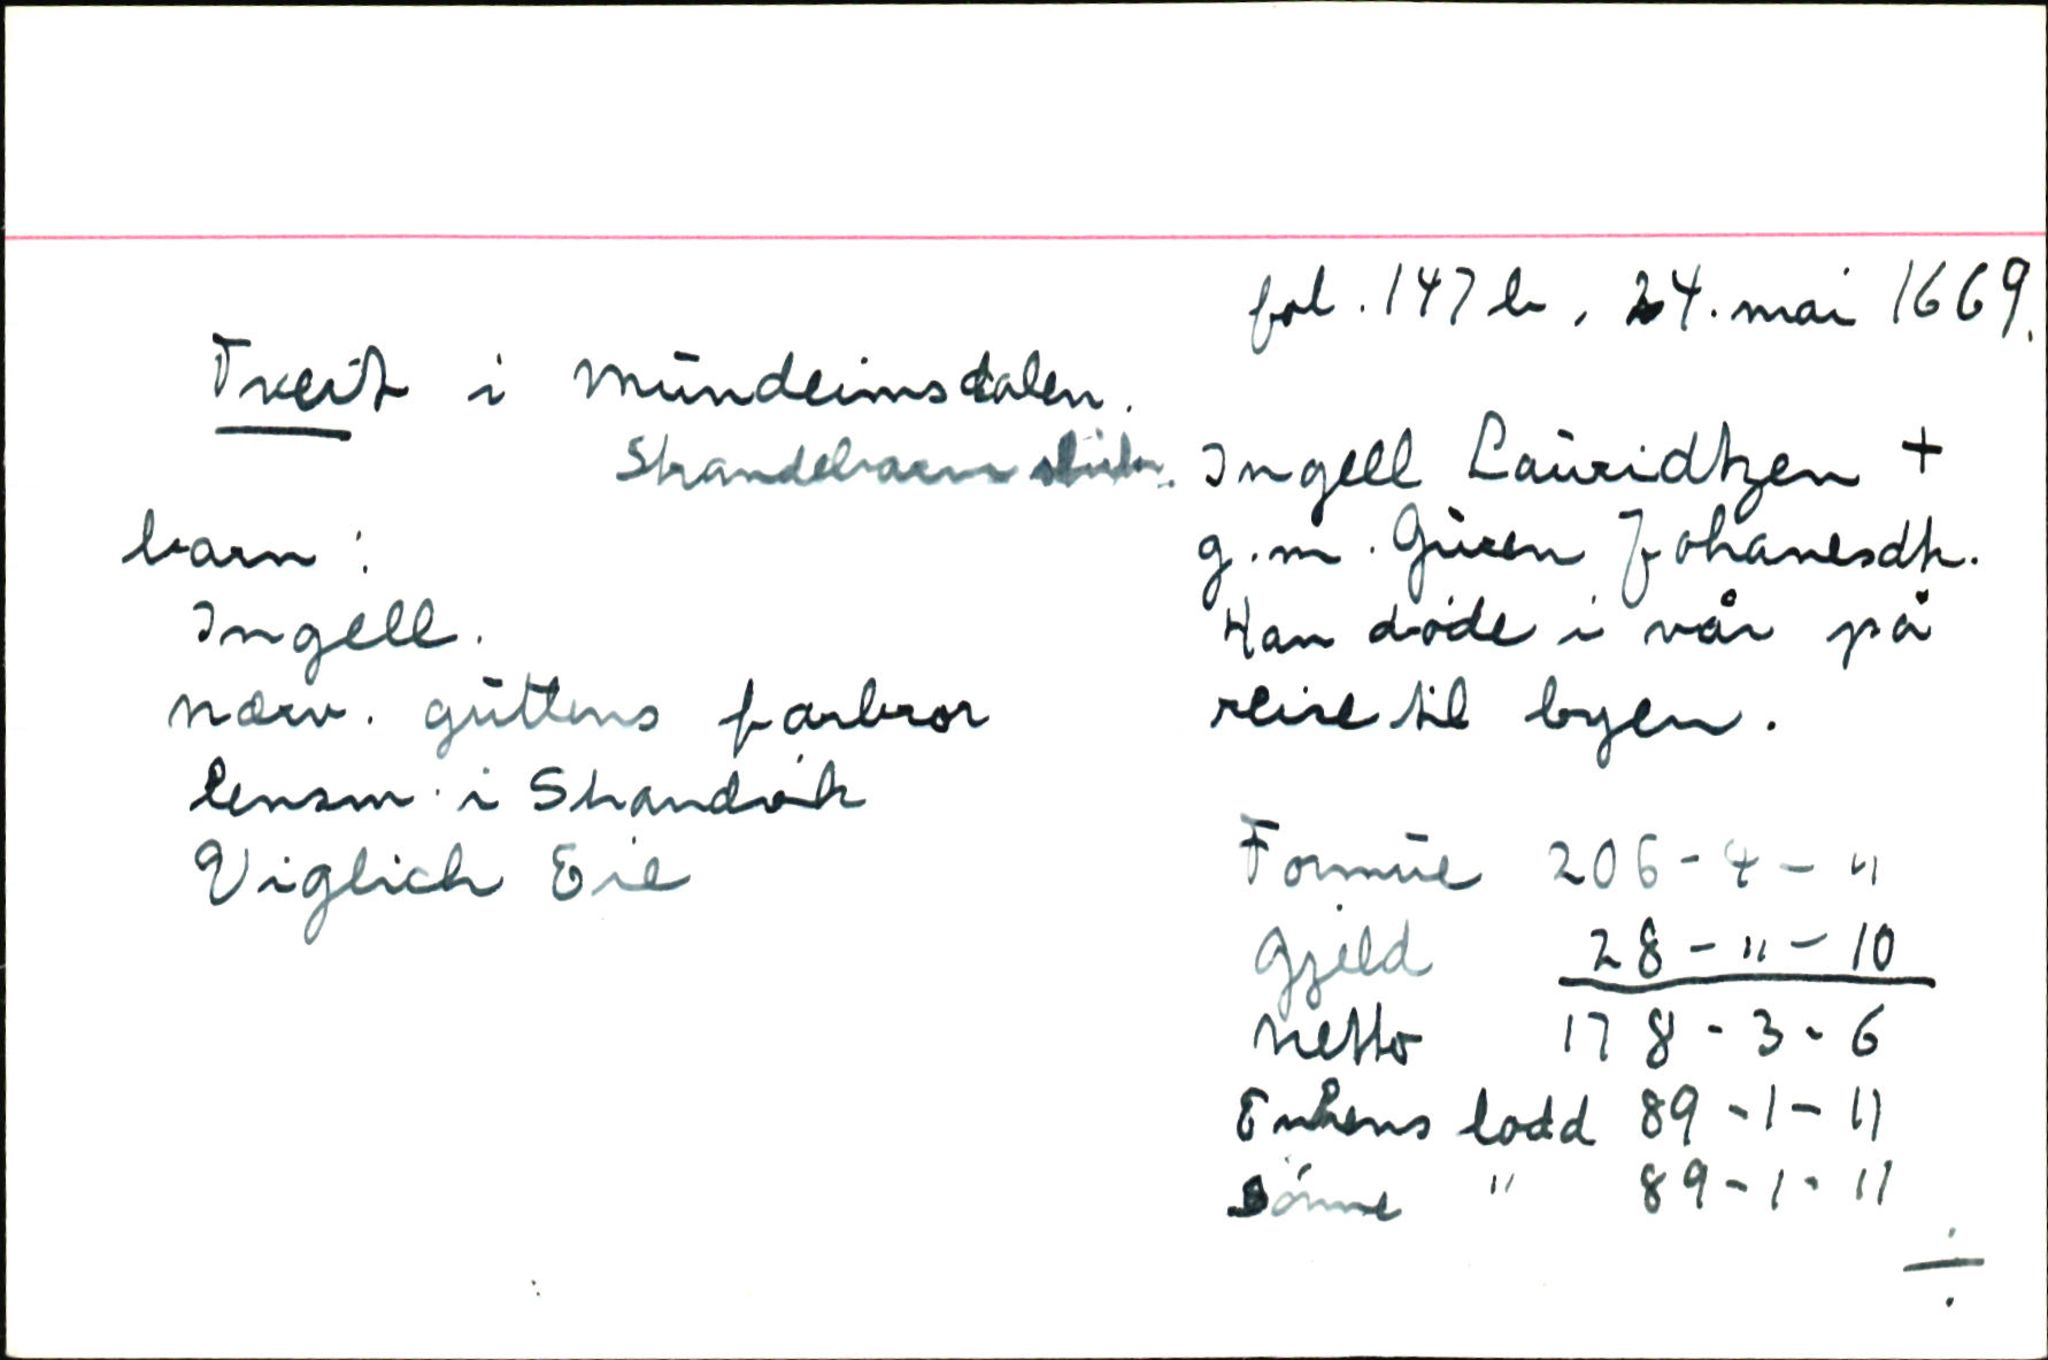 fol. 147 b, 24. mai 1669.
Tveit i Mundeimsdalen.
Strandebarm
barn:
Ingell.
nærv. guttens farbror
lensm. i Strandvik
Viglich Eie
Ingell Lauridtzen +
g.m. Guren Johanesdtr.
Han døde i vår på
reise til byen.
Formue 206 - 4 - "
Gjeld 28 - " - 10
Netto 178 - 3 - 6
Enkens lodd 89 - 1 - 11
sønne " 89 - 1 - 11
÷